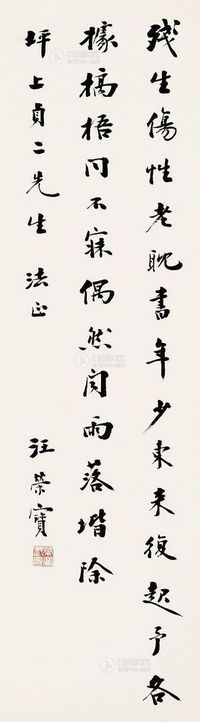 殘生傷性老耽書年少東来復起予各
據槁梧同不寐偶然聞雨落堦除
坪上貞二先生 法正
汪榮寶